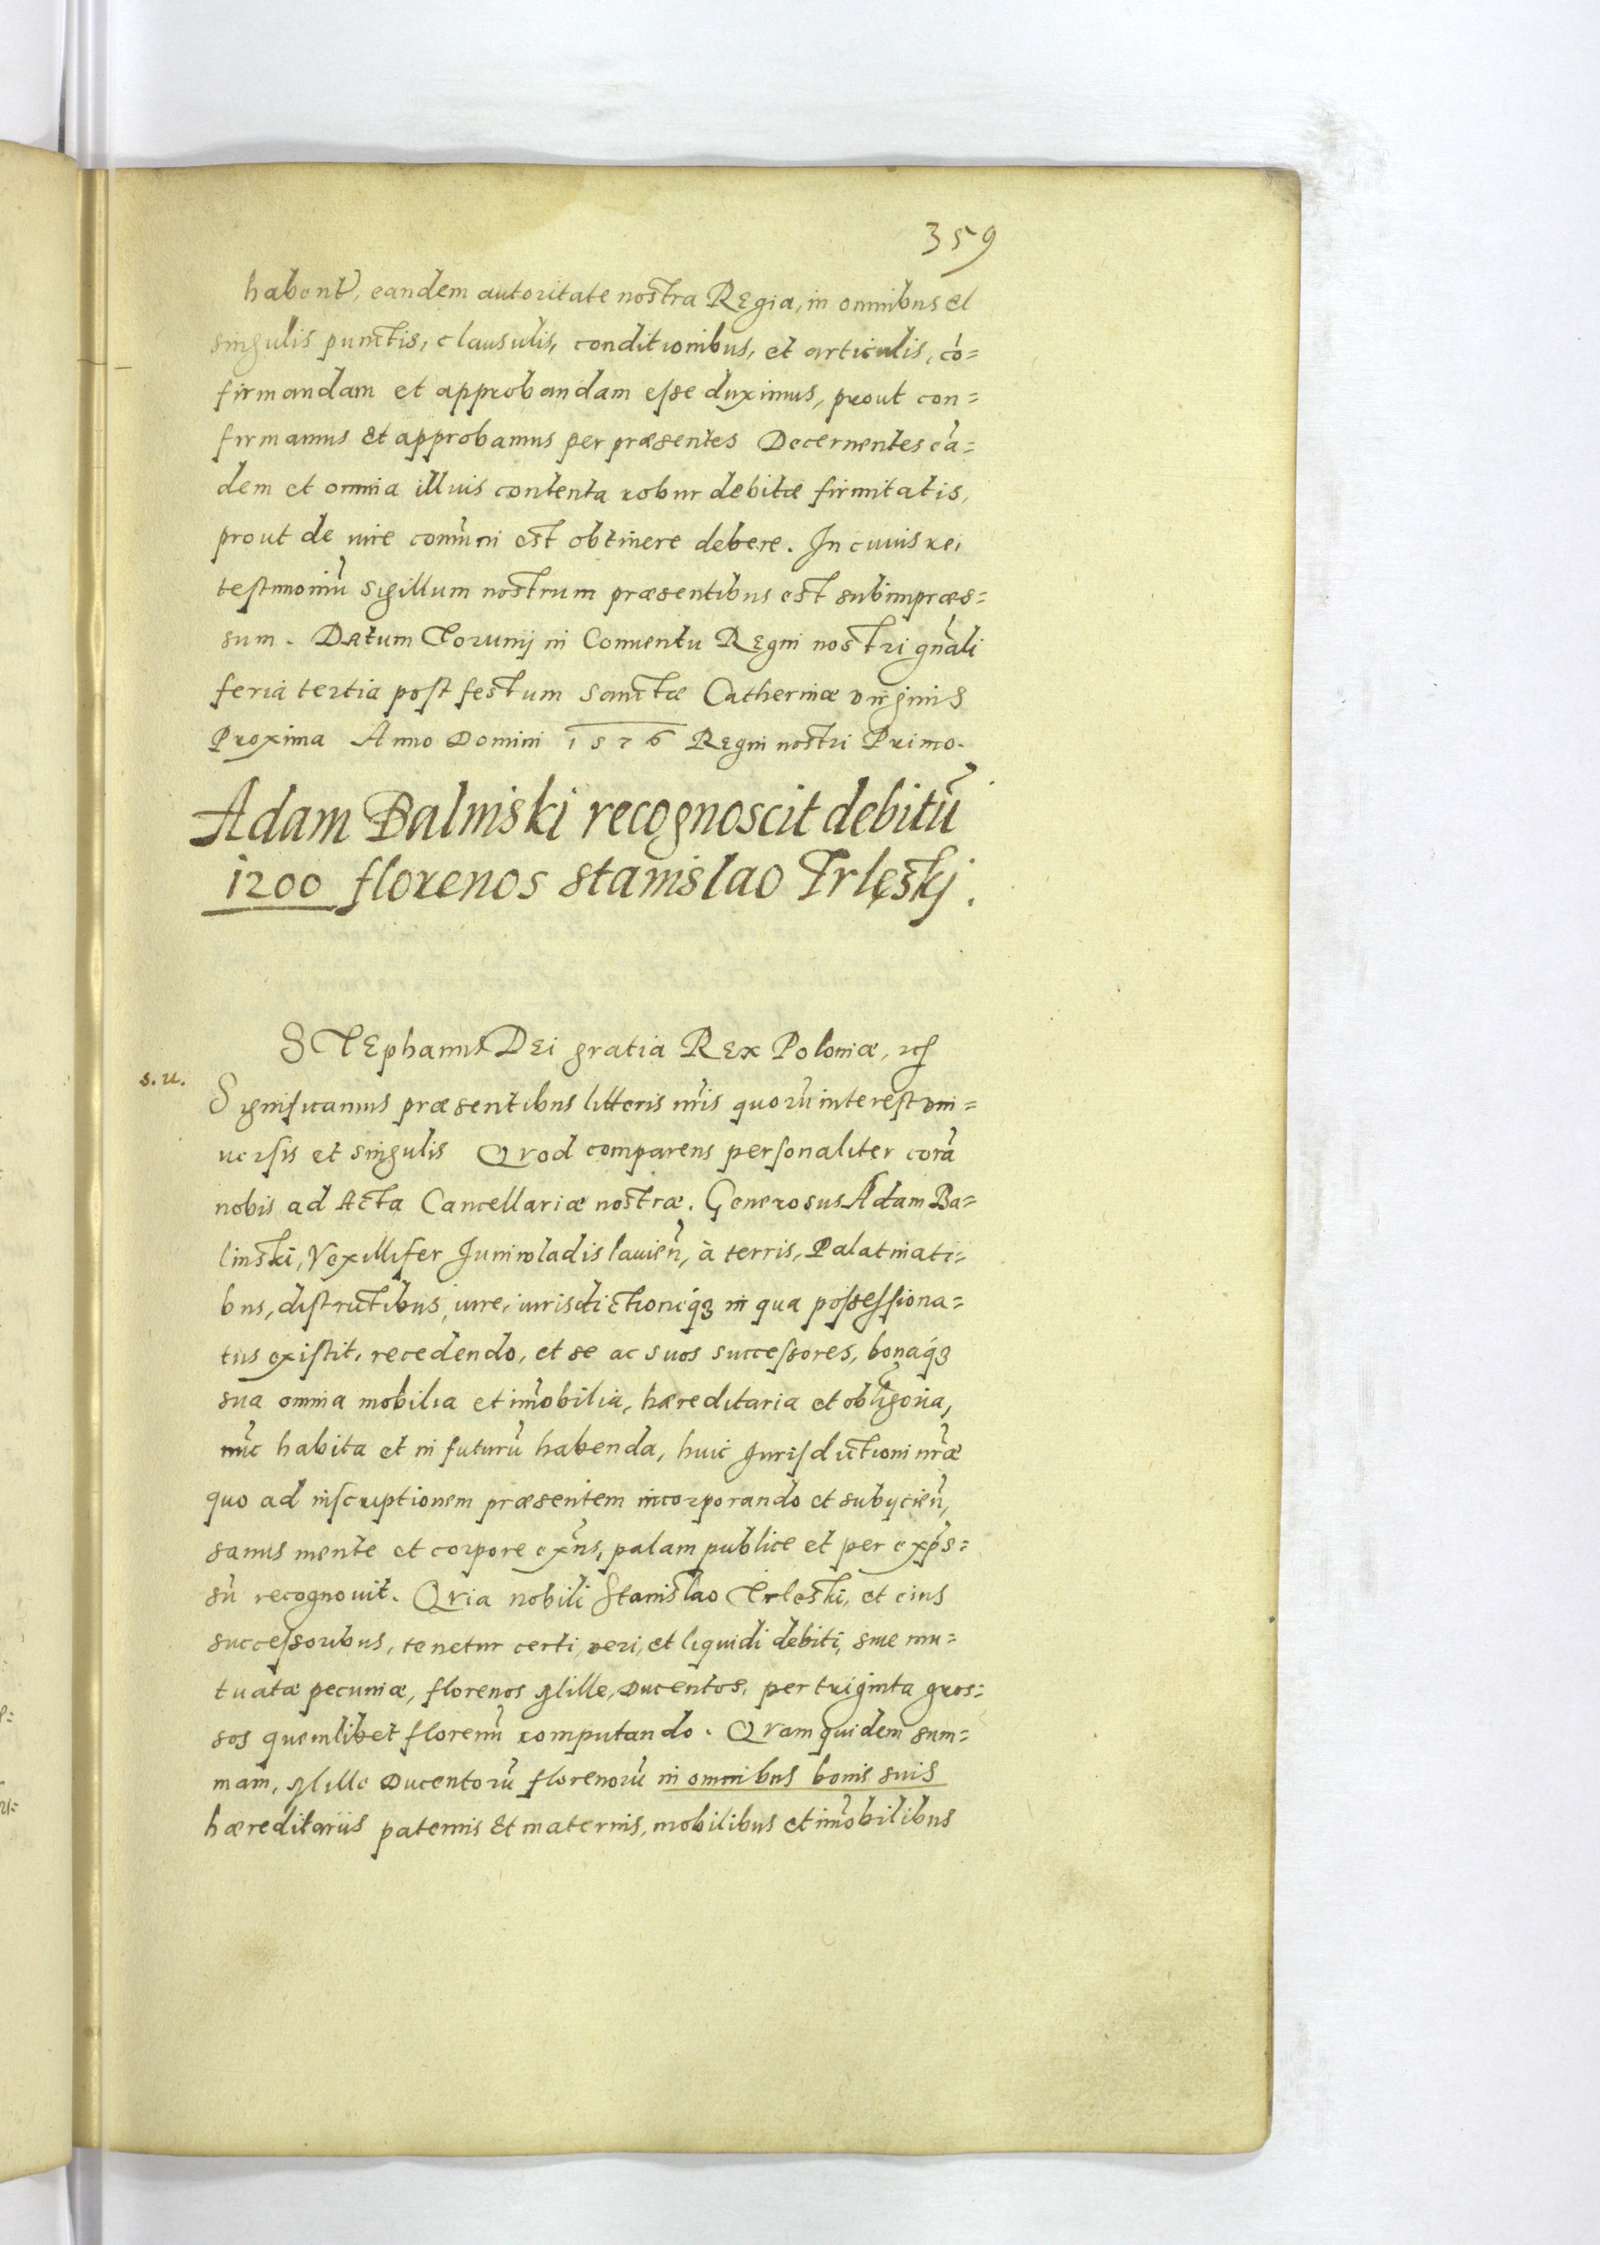 359
habent, eandem autoritate nostra Regia, in omnibus et
singulis punctis, clausulis, conditionibus, et articulis, cō=
firmandam et approbandam esse duximus, prout con=
firmamus et approbamus per præsentes Decernentes eā=
dem et omnia illius contenta robur debitæ firmitatis,
prout de iure comūni est obtinere debere. In cuius rei
testimoniū sigillum nostrum præsentibus est subimpræs=
sum. Datum Torunij in Conuentu Regni nostri gnāli
feria tertia post festum Sanctæ Catherinæ virginis
Proxima Anno Domini 1576 Regni nostri Primo.
Adam Balinski recognoscit debitū
1200 florenos Stanislao Trlęskj.
STEphanus DEi gratia REx Poloniæ, etc
s. u.
Significamus præsentibus litteris nrīs quorū interest vni=
uersis et singulis Qvod comparens personaliter corā
nobis ad Acta Cancellariæ nostræ. Generosus Adam Ba=
linski, Vexillifer Juniwladislauień, à terris, Palatinati=
bus, districtibus, iure, iurisdictioniq́ꝫ in qua possessiona=
tus existit, recedendo, et se ac suos successores, bonaq́ꝫ
sua omnia mobilia et im̄obilia, hæreditaria et obligōria,
nūc habita et in futurū habenda, huic Jurisdictioni nrǣ
quo ad inscriptionem præsentem incorporando et subycień,
sanus mente et corpore exn̄s, palam publice et per exp̄s=
sū recognouit. Qvia nobili Stanislao Trleski, et eius
successoribus, tenetur certi, veri, et liquidi debiti, siue mu=
tuatæ pecuniæ, florenos Mille, Ducentos, per triginta gros=
sos quemlibet florenū computando. Qvam quidem sum=
mam, Mille Ducentorū florenorū in omnibus bonis suis
hæreditariis paternis Et maternis, mobilibus et im̄obilibus